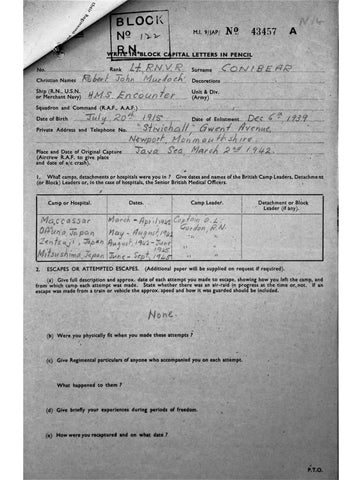 BLOCK
Nº 122
R.N.
M.I. 9/JAP/ Nº 43457 A
WRITE IN BLOCK CAPITAL LETTERS IN PENCIL
No. Rank Lt R.N.V.R. Surname CONIBEAR
Christian Names Robert John Murdoch Decorations
Ship (R.N., U.S.N. or Merchant Navy) H.M.S. Encounter Unit & Div. (Army)
Squadron and Command (R.A.F., A.A.F.)
Date of Birth July 20th 1915 Date of Enlistment Dec 6th 1939
Private Address and Telephone No. Gwent Avenue,
Newport, Monmouthshire.
Place and Date of Original Capture Java Sea, March 2nd 1942.
(Aircrew R.A.F. to give place
and date of a/c crash).
1. What camps, detachments or hospitals were you in? Give dates and names of the British Camp Leaders, Detachment
(or Block) Leaders or, in the case of hospitals, the Senior British Medical Officers.
Camp or Hospital. Dates. Camp Leader. Detachment or Block Leader (if any).
Maccassar March - April 1942 Captain O.L.
Ofuna, Japan May - August, 1942 Gordon, R.N.
Zentsuji, Japan August, 1942 - June 1945
Mitsushima, Japan June - Sept, 1945
2. ESCAPES OR ATTEMPTED ESCAPES. (Additional paper will be supplied on request if required).
(a) Give full description and approx. date of each attempt you made to escape, showing how you left the camp, and
from which camp each attempt was made. State whether there was an air-raid in progress at the time or not. If an
escape was made from a train or vehicle the approx. speed and how it was guarded should be included.
None.
(b) Were you physically fit when you made these attempts?
(c) Give Regimental particulars of anyone who accompanied you on each attempt.
What happened to them?
(d) Give briefly your experiences during periods of freedom.
(e) How were you recaptured and on what date?
P.T.O.